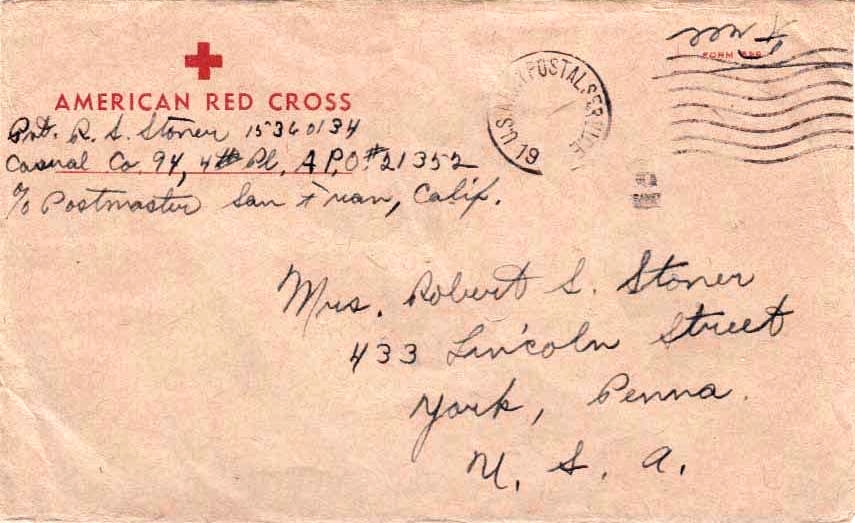 Free
FORM
AMERICAN RED CROSS
Pvt. R. S. Stoner 15360134
Casual Co. 94, 4th Pl, A.P.O. #21352
c/o Postmaster San Fran, Calif.
U.S. ARMY POSTAL SERVICE
19
Mrs. Robert S. Stoner
433 Lincoln Street
York, Penna.
U. S. A.